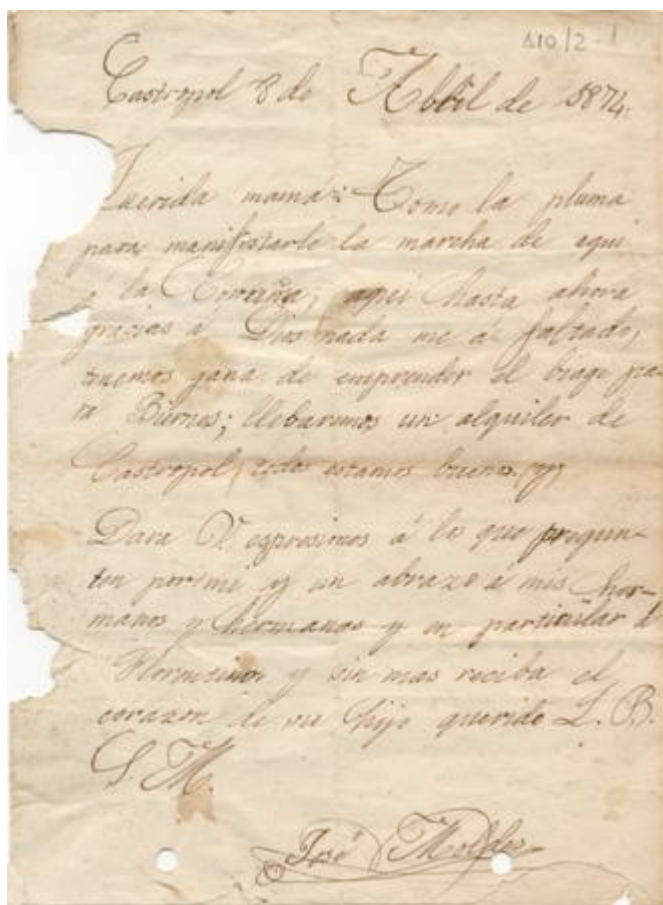 A10/2-1
Castropol 8 de Abril de 1874.
Querida mamá: Tomo la pluma
para manifestarle la marcha de aqui
á la Coruña; aqui hasta ahora
gracias á Dios nada me á faltado,
tenemos gana de emprender el biage pa-
ra Buenos; llebaremos un alquiler de
Castropol, todos estamos buenos.
Dara V. espresiones á los que pregun-
ten por mi y un abrazo á mis her-
manos y hermanas y en particular á
y sin mas reciba el
corazon de su hijo querido L. B.
S. M.
José